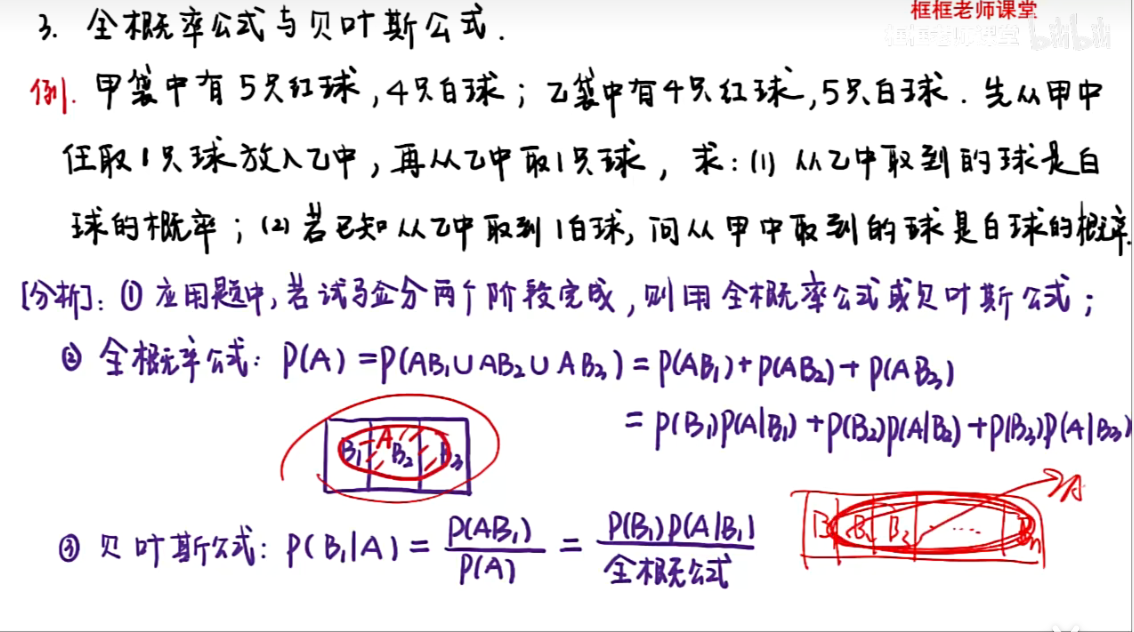 框框老师课堂
框框老师课堂 bilibili
3. 全概率公式与贝叶斯公式.
例. 甲袋中有5只红球,4只白球;乙袋中有4只红球,5只白球.先从甲中
任取1只球放入乙中,再从乙中取1只球,求:(1) 从乙中取到的球是白
球的概率;(2)若已知从乙中取到1白球,问从甲中取到的球是白球的概率.
[分析]:① 应用题中,若试验分两个阶段完成,则用全概率公式或贝叶斯公式;
② 全概率公式: P(A)=P(AB₁∪AB₂∪AB₃)=P(AB₁)+P(AB₂)+P(AB₃)
=P(B₁)P(A|B₁)+P(B₂)P(A|B₂)+P(B₃)P(A|B₃)
B₁ A B₂ B₃
A
B₁ B₂ B₃ ..... Bn
③ 贝叶斯公式: P(B₁|A)=P(AB₁)/P(A)=P(B₁)P(A|B₁)/全概公式